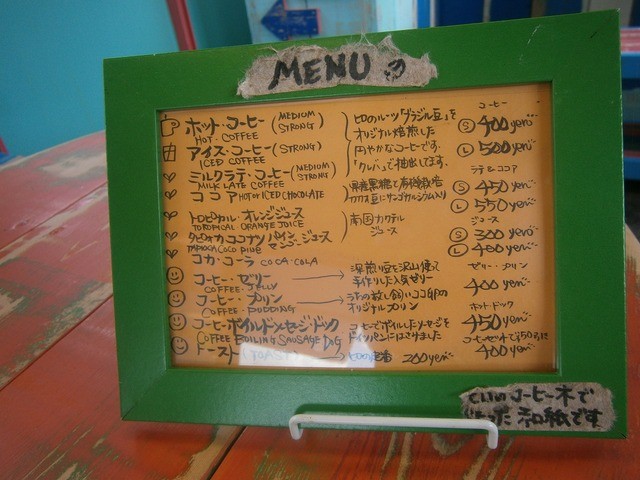 MENU
ホット・コーヒー (MEDIUM STRONG)
HOT・COFFEE
アイス・コーヒー (STRONG)
ICED COFFEE
ミルクラテ・コーヒー (MEDIUM STRONG)
MILK LATE COFFEE
ココア HOT or ICED CHOCOLATE
トロピカル・オレンジジュース
TOROPICAL ORANGE JUICE
タピオカココナツ パイン マンゴ・ジュース
TAPIOCA COCO PINE
コカ・コーラ COCA・COLA
コーヒー・ゼリー
COFFEE・JELLY
コーヒー・プリン
COFFEE・PUDDING
コーヒーボイルドソーセージ・ドッグ
COFFEE BOILING SAUSAGE DOG
トースト (TOAST)
ヒロのルーツ「ブラジル豆」を
オリジナル焙煎した
円やかなコーヒーです.
「クレバ」で抽出してます.
南国カクテル
ジュース
深煎り豆を沢山使って
手作りした人気ゼリー
オリジナルプリン
コーヒーでボイルしたソーセージを
ドイツパンにはさみました
ヒロの定番 200yen
コーヒー
S 400yen
L 500yen
ラテ・ココア
S 450yen
L 550yen
ジュース
S 300yen
L 400yen
ゼリー・プリン
400yen
ホットドック
450yen
400yen
コーヒー木で
和紙です